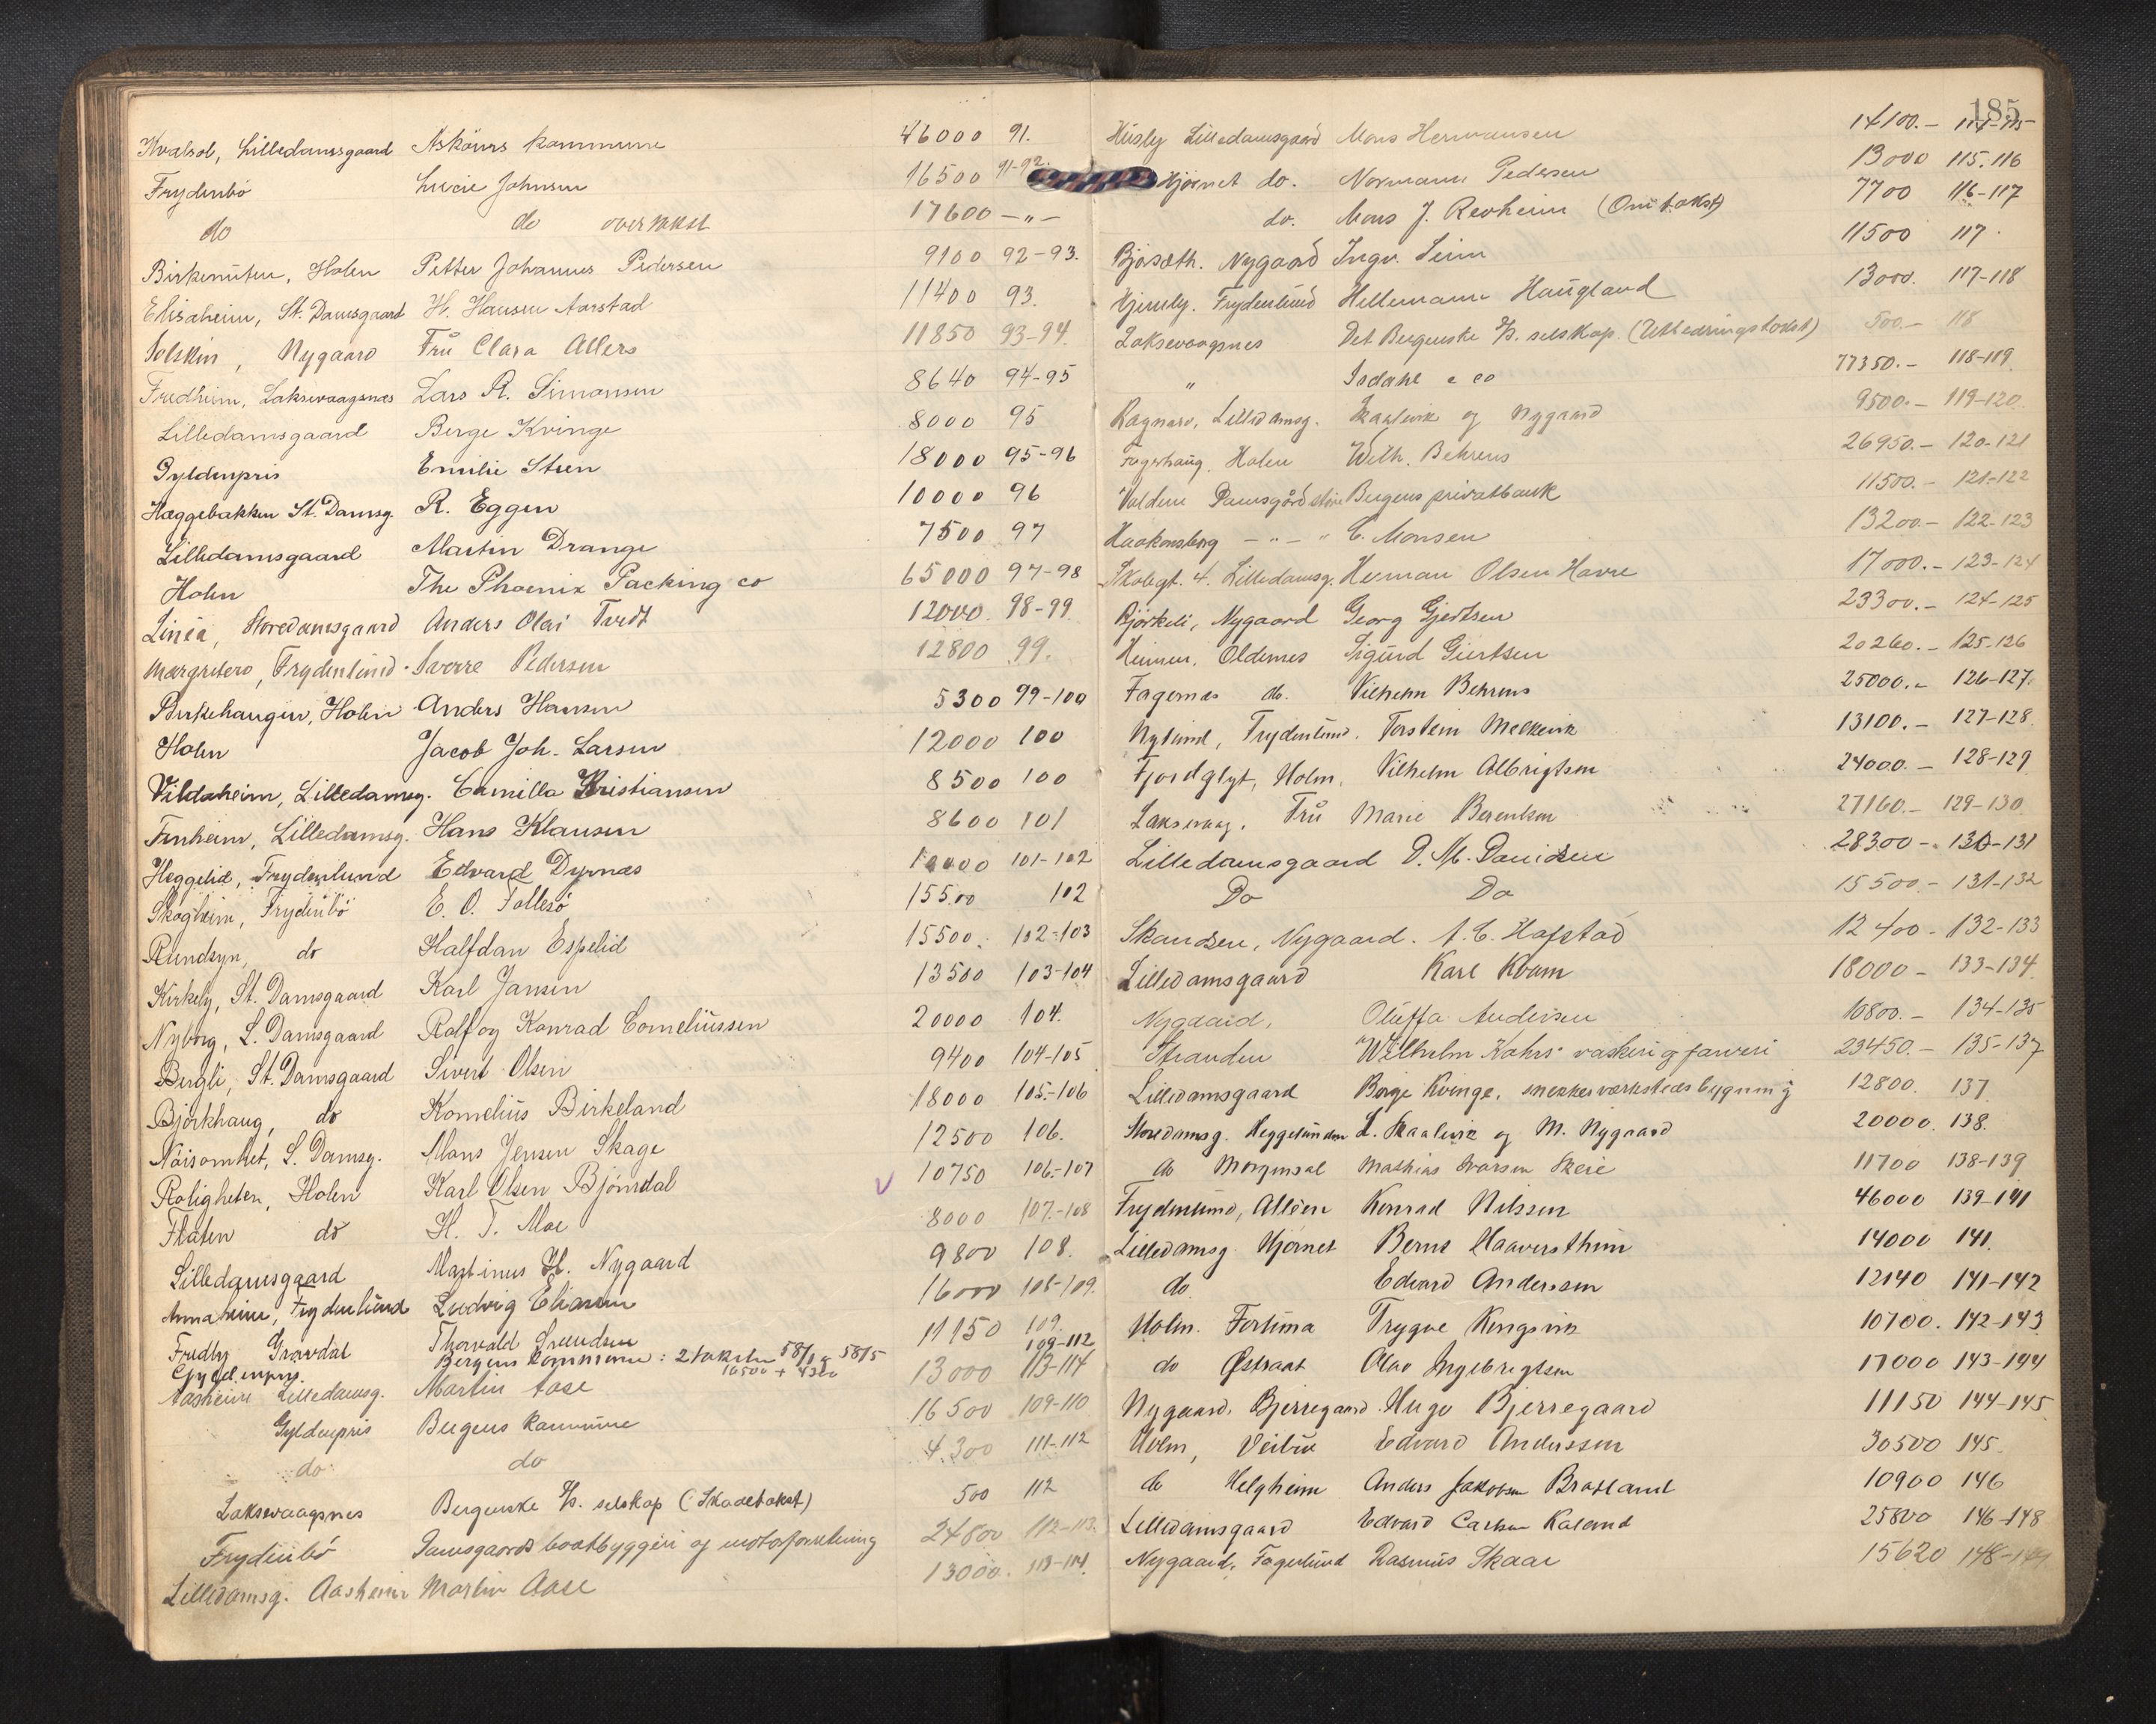 Kvalsol, Lilledamsgaard Askøens kommune 46000 91.
Frydenbö Lucie Johnsen 16500 91-92.
do do overtakst 17600 — " —
Birkenuten, Holen Petter Johannes Pedersen 9100 92-93.
Elisaheim, St. Damsgaard H. Hansen Aarstad 11400 93.
Solskin, Nygaard Frü Clara Allers 11850 93-94.
Fredheim, Laksevaagsnæs Lars R. Simonsen 8640 94-95
Lilledamsgaard Berge Kvinge 8000 95
Gyldenpris Emilie Steen 18000 95-96
Hæggebakken St. Damsg. R. Eggen 10000 96
Lilledamsgaard Martin Drange 7500 97
Holen The Phoenix Packing co 65000 97-98
Linéa, Storedamsgaard Anders Olai Tvedt 12000. 98-99.
Margretero, Frydenlund. Sverre Pedersen 12800 99.
Birkehaugen, Holen Anders Hansen 5300 99-100
Holen Jacob Joh. Larsen 12000 100
Vildaheim, Lilledamsg. Camilla Kristiansen 8500 100
Finheim, Lilledamsg. Hans Klausen 8600 101
Heggelid, Frydenlund Edvard Dyrnæs 10000 101-102
Skogheim, Frydenbö E. O. Tollesö 15500 102
Rundsyn, do Halfdan Espelid 15500. 102-103
Kirkely, St. Damsgaard Karl Jansen 13500 103-104
Nyborg, L. Damsgaard Rolf og Konrad Corneliüssen 20000 104.
Bergli, St. Damsgaard Sivert Olsen 9400 104-105
Björkhaug, do Kornelius Birkeland 18000 105-106
Nöisomhet, S. Damsg. Mons Jensen Skage 12500 106.
Roligheten, Holen Karl Olsen Björndal 10750 106-107
Flaten do H. T. Moe 8000 107-108
Lilledamsgaard Martinus H. Nygaard 9800 108.
Annaheim, Frydenlünd Ludvig Eliassen 16000 108-109.
Fredly Gravdal Thorvald Svendsen 11150 109.
Gyldenpris. Bergens Kommune: 2 takster 58/1 og 58/5 109-112
16500 + 4300
Aasheim Lilledamsg. Martin Aase 13000 113-114
Gyldenpris Bergens kommune 16500 109-110
do do 4300 111-112
Laksevaagsnes Bergenske D/s. selskap (Skadetakst) 500 112
Frydenbö Damsgaards baatbyggeri og motorforretning 24800 112-113.
Lilledamsg. Aasheim Martin Aase 13000. 113-114.
185
Husly Lilledamsgaard Mons Hermansen 14100.- 114-115
Hjörnet do. Normann Pedersen 13000 115-116
do. Mons J. Revheim (Omtakst) 7700 116-117
Bjäsæth. Nygaard Ingv. Seim 11500 117
Hjemly. Frydenlünd Hellemann Haugland 13000. 117-118
Laksevaagsnes Det Bergenske D/s. selskap. (Utbedringstakst) 500.- 118
" Isdahl & co 77350.- 118-119
Ragnaro, Lilledamsg. Skaalevik og Nygaard 9500.- 119-120
Fagerhaug, Holen Wilh. Behrens 26950.- 120-121
Volden Damsgård store Bergens privatbank 11500.- 121-122
Haakonsborg - " - " C. Monsen 13200.- 122-123
Skolegt. 4. Lilledamsg. Herman Olsen Havre 17000.- 123-124
Björkeli, Nygaard Georg Gjertsen 23300.- 124-125
Heimen, Oldernes Sigurd Giertsen 20260.- 125-126
Fagernæs do. Vilhelm Behrens 25000.- 126-127.
Nylund, Frydenlund. Torstein Melkevik 13100.- 127-128.
Fjordglyt, Holen. Vilhelm Albrigtsen 24000.- 128-129
Laksevaag. Frü Marie Berentsen 27160.- 129-130
Lilledamsgaard D. M. Danielsen 28300-. 130-131
Do Do 15500.- 131-132
Skansen, Nygaard. A. C. Hafstad 12400- 132-133
Lilledamsgaard Karl Kvam 18000- 133-134
Nygaard, Oluffa Andersen 10800.- 134-135
Stranden Wilhelm Kahrs' vaskeri og farveri 23450.- 135-137
Lilledamsgaard Børge Kvinge, snekkerverkstedsbygning 12800. 137
Storedamsg. Heggelunden L. Skaalevik og M. Nygaard 20000. 138.
do Morgensol Mathias Ivarsen Skeie 11700 138-139
Frydenlund, Alléen Konrad Nilssen 46000 139-141
Lilledamsg. Hjørnet Bernt Haaversthun 14000 141.
do Edvard Anderssen 12140 141-142
Holen. Fortuna Trygve Kongsvik 10700. 142-143
do Østraat Olav Ingebrigtsen 17000 143-144
Nygaard. Bjerregaard. Hugo Bjerregaard 11150 144-145
Holen, Veibüe Edvard Anderssen 30500 145.
do Helgheim Anders Jakobsen Bratland 10900 146
Lilledamsgaard Edvard Carlsen Kaland 25800 146-148
Nygaard, Fagerlund Rasmus Skaar 15620 148-149